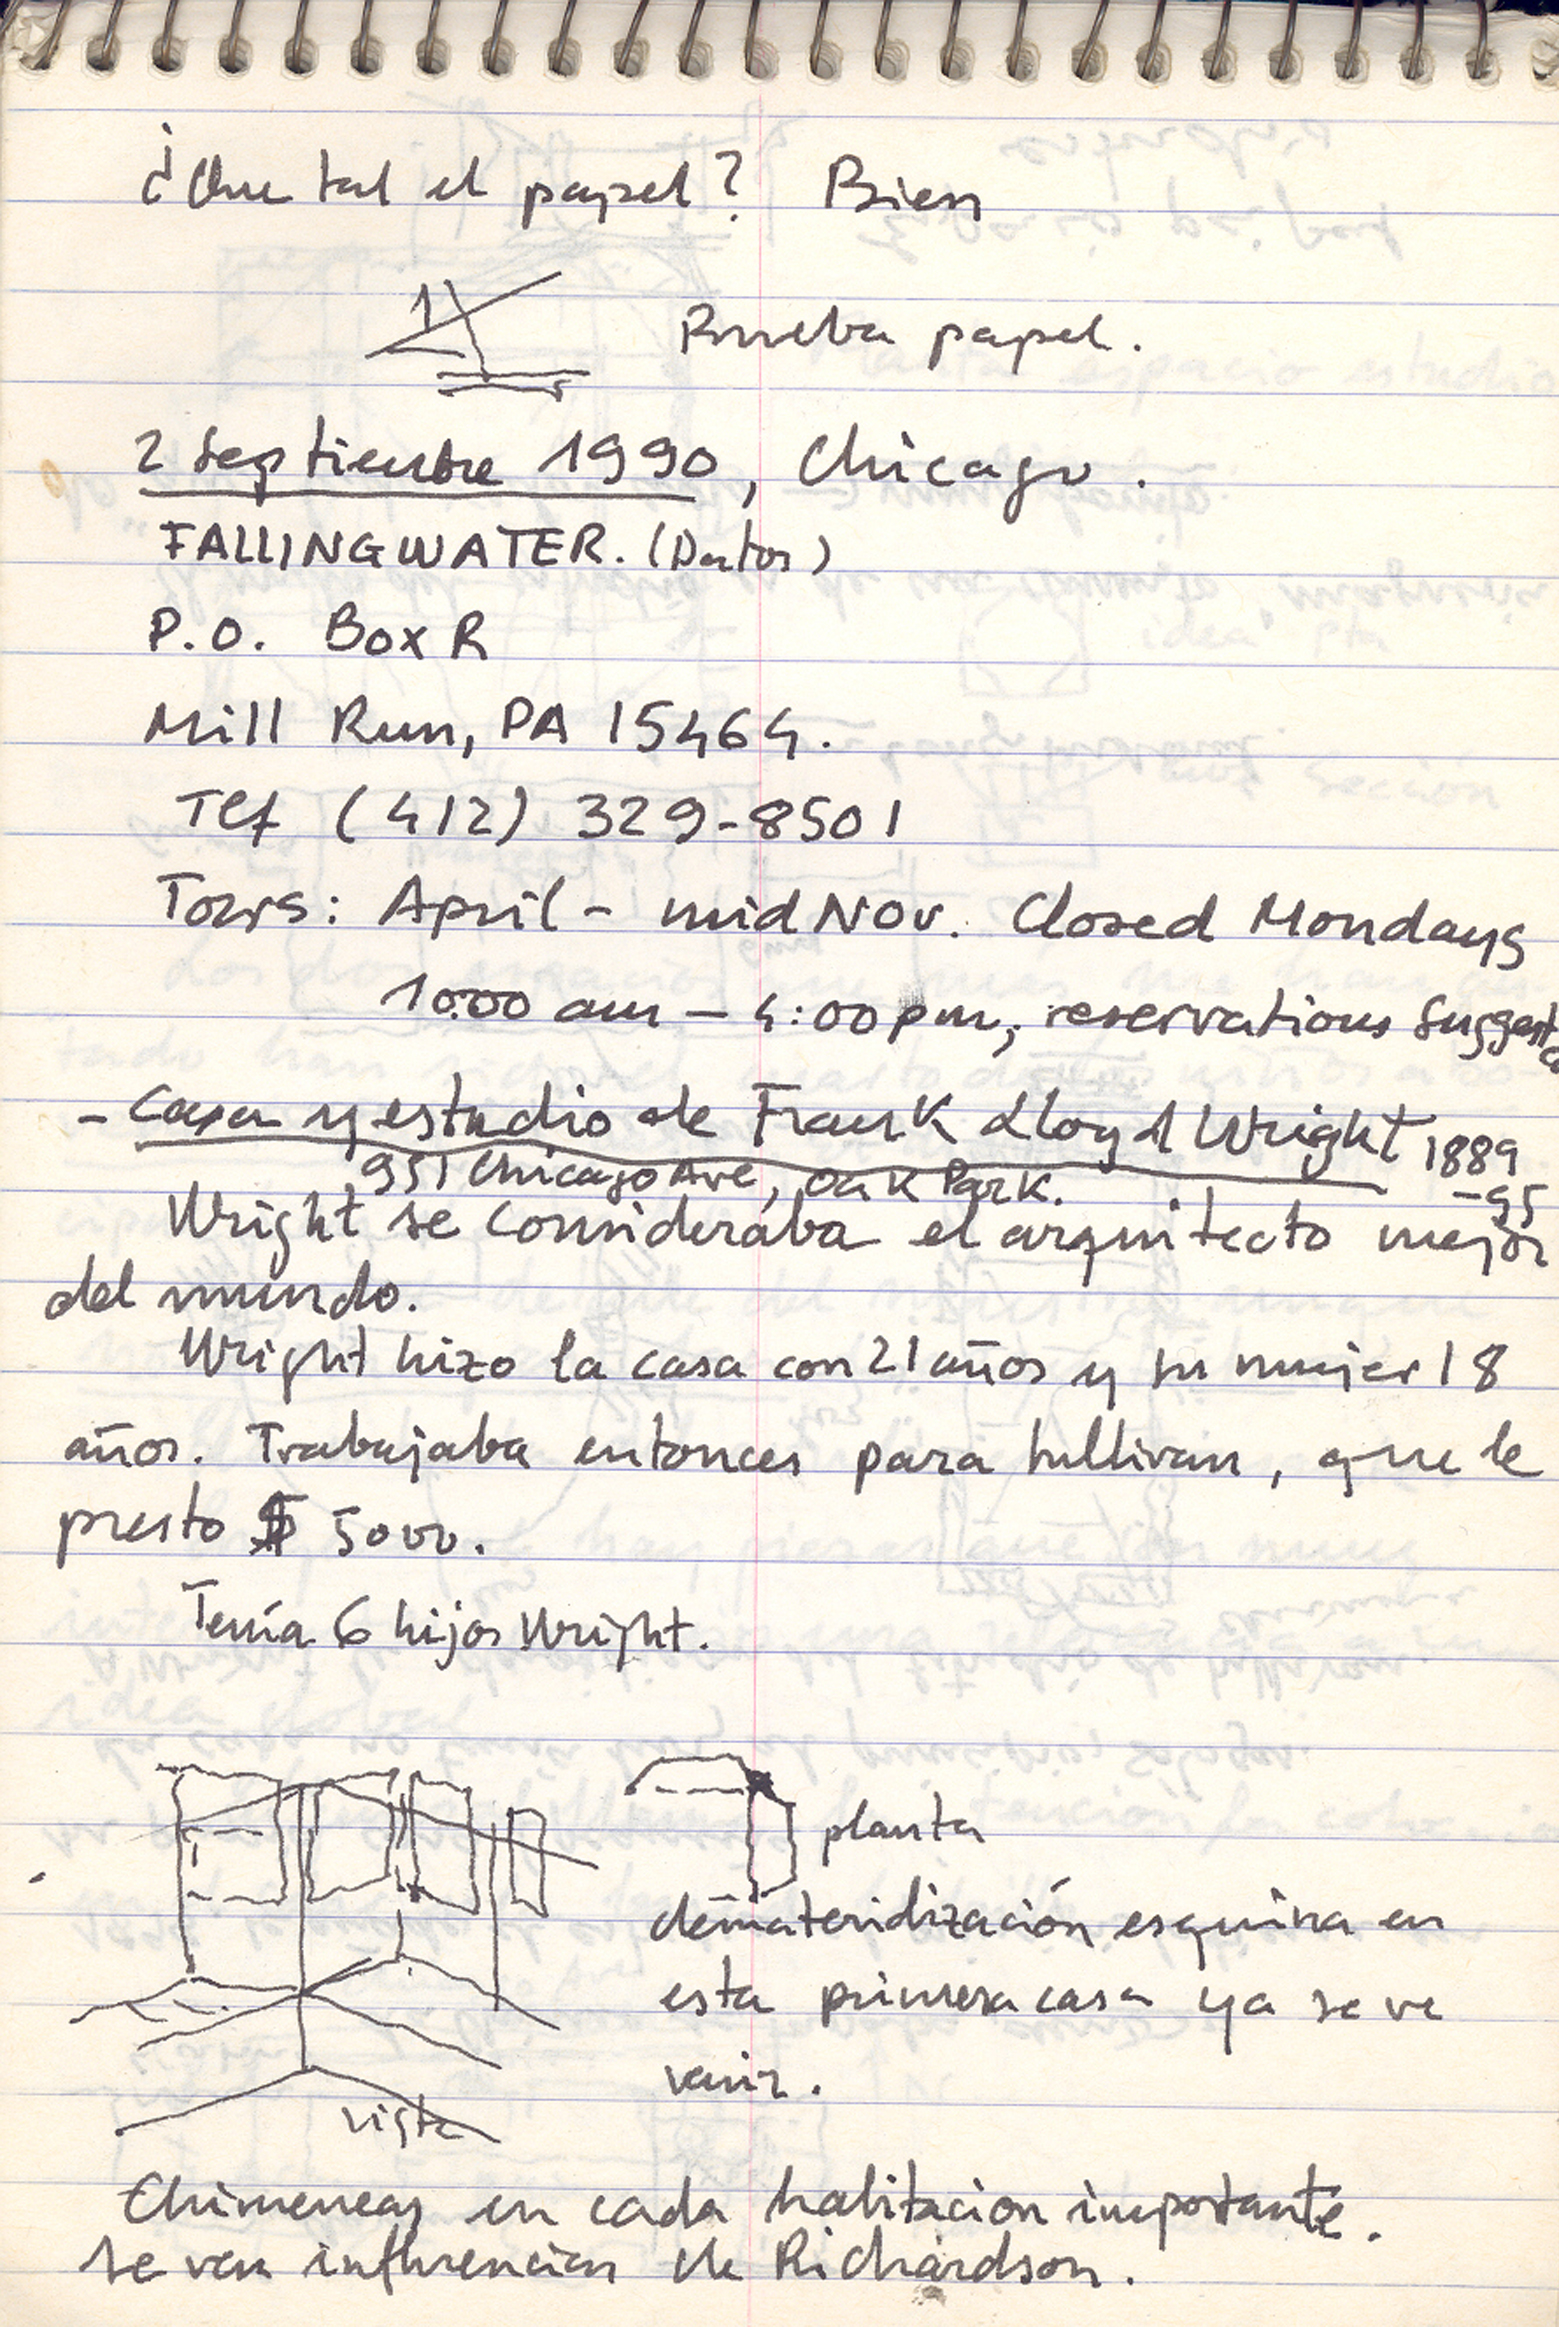 ¿Que tal el papel? Bien
Prueba papel.
2 Septiembre 1990, Chicago.
FALLINGWATER. (Datos)
P.O. Box R
Mill Run, PA 15464.
Tlf (412) 329-8501
Tours: April - mid Nov. Closed Mondays
10:00 am — 4:00 pm, reservations suggest
- Casa y estudio de Frank Lloyd Wright 1889
-95
951 Chicago Ave, Oak Park.
Wright se consideraba el arquitecto mejor
del mundo.
Wright hizo la casa con 21 años y su mujer 18
años. Trabajaba entonces para Sullivan, que le
presto $ 5000.
Tenía 6 hijos Wright.
planta
demateridización esquina en
esta primera casa ya se ve
venir.
vista
Chimeneas en cada habitacion importante.
se ven influencias de Richardson.